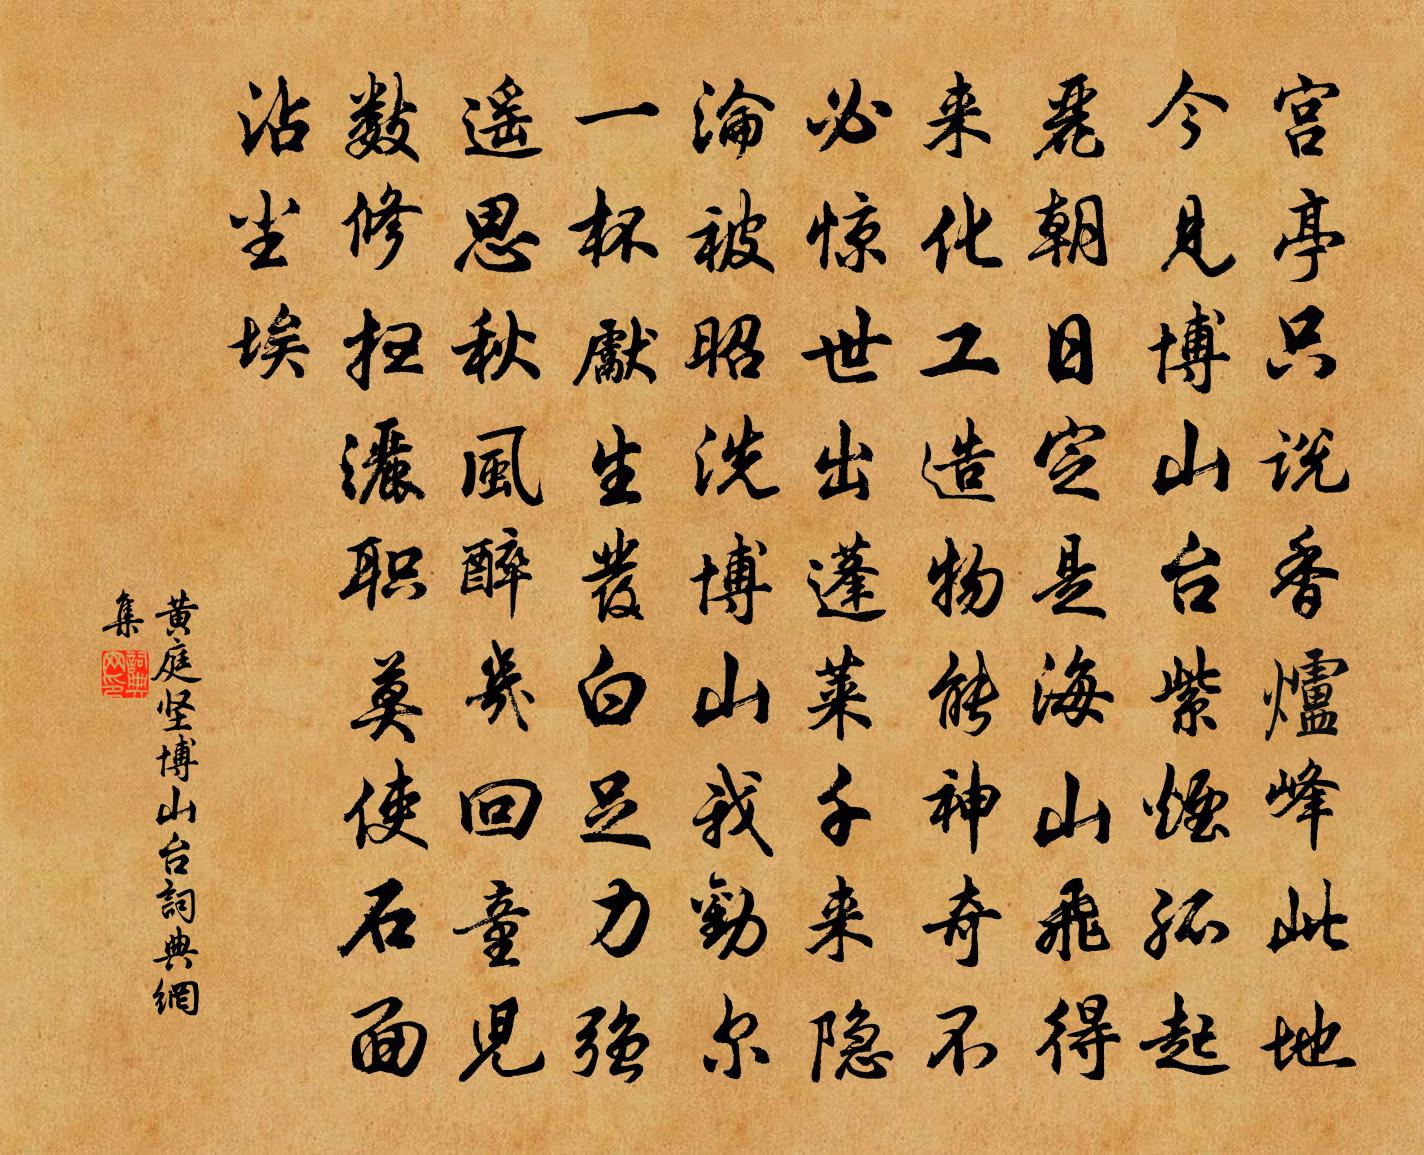 宫亭只说香爐峰此地
今見博山台紫煙孤起
麗朝日定是海山飛得
来化工造物能神奇不
必惊世出蓬莱千来隐
淪被昭洗博山我勸尔
一杯獻生發白足力强
遥思秋風醉幾回童兒
数修扫灑职莫使石面
沾尘埃
黄庭坚博山台詞典網
集
詞典網印